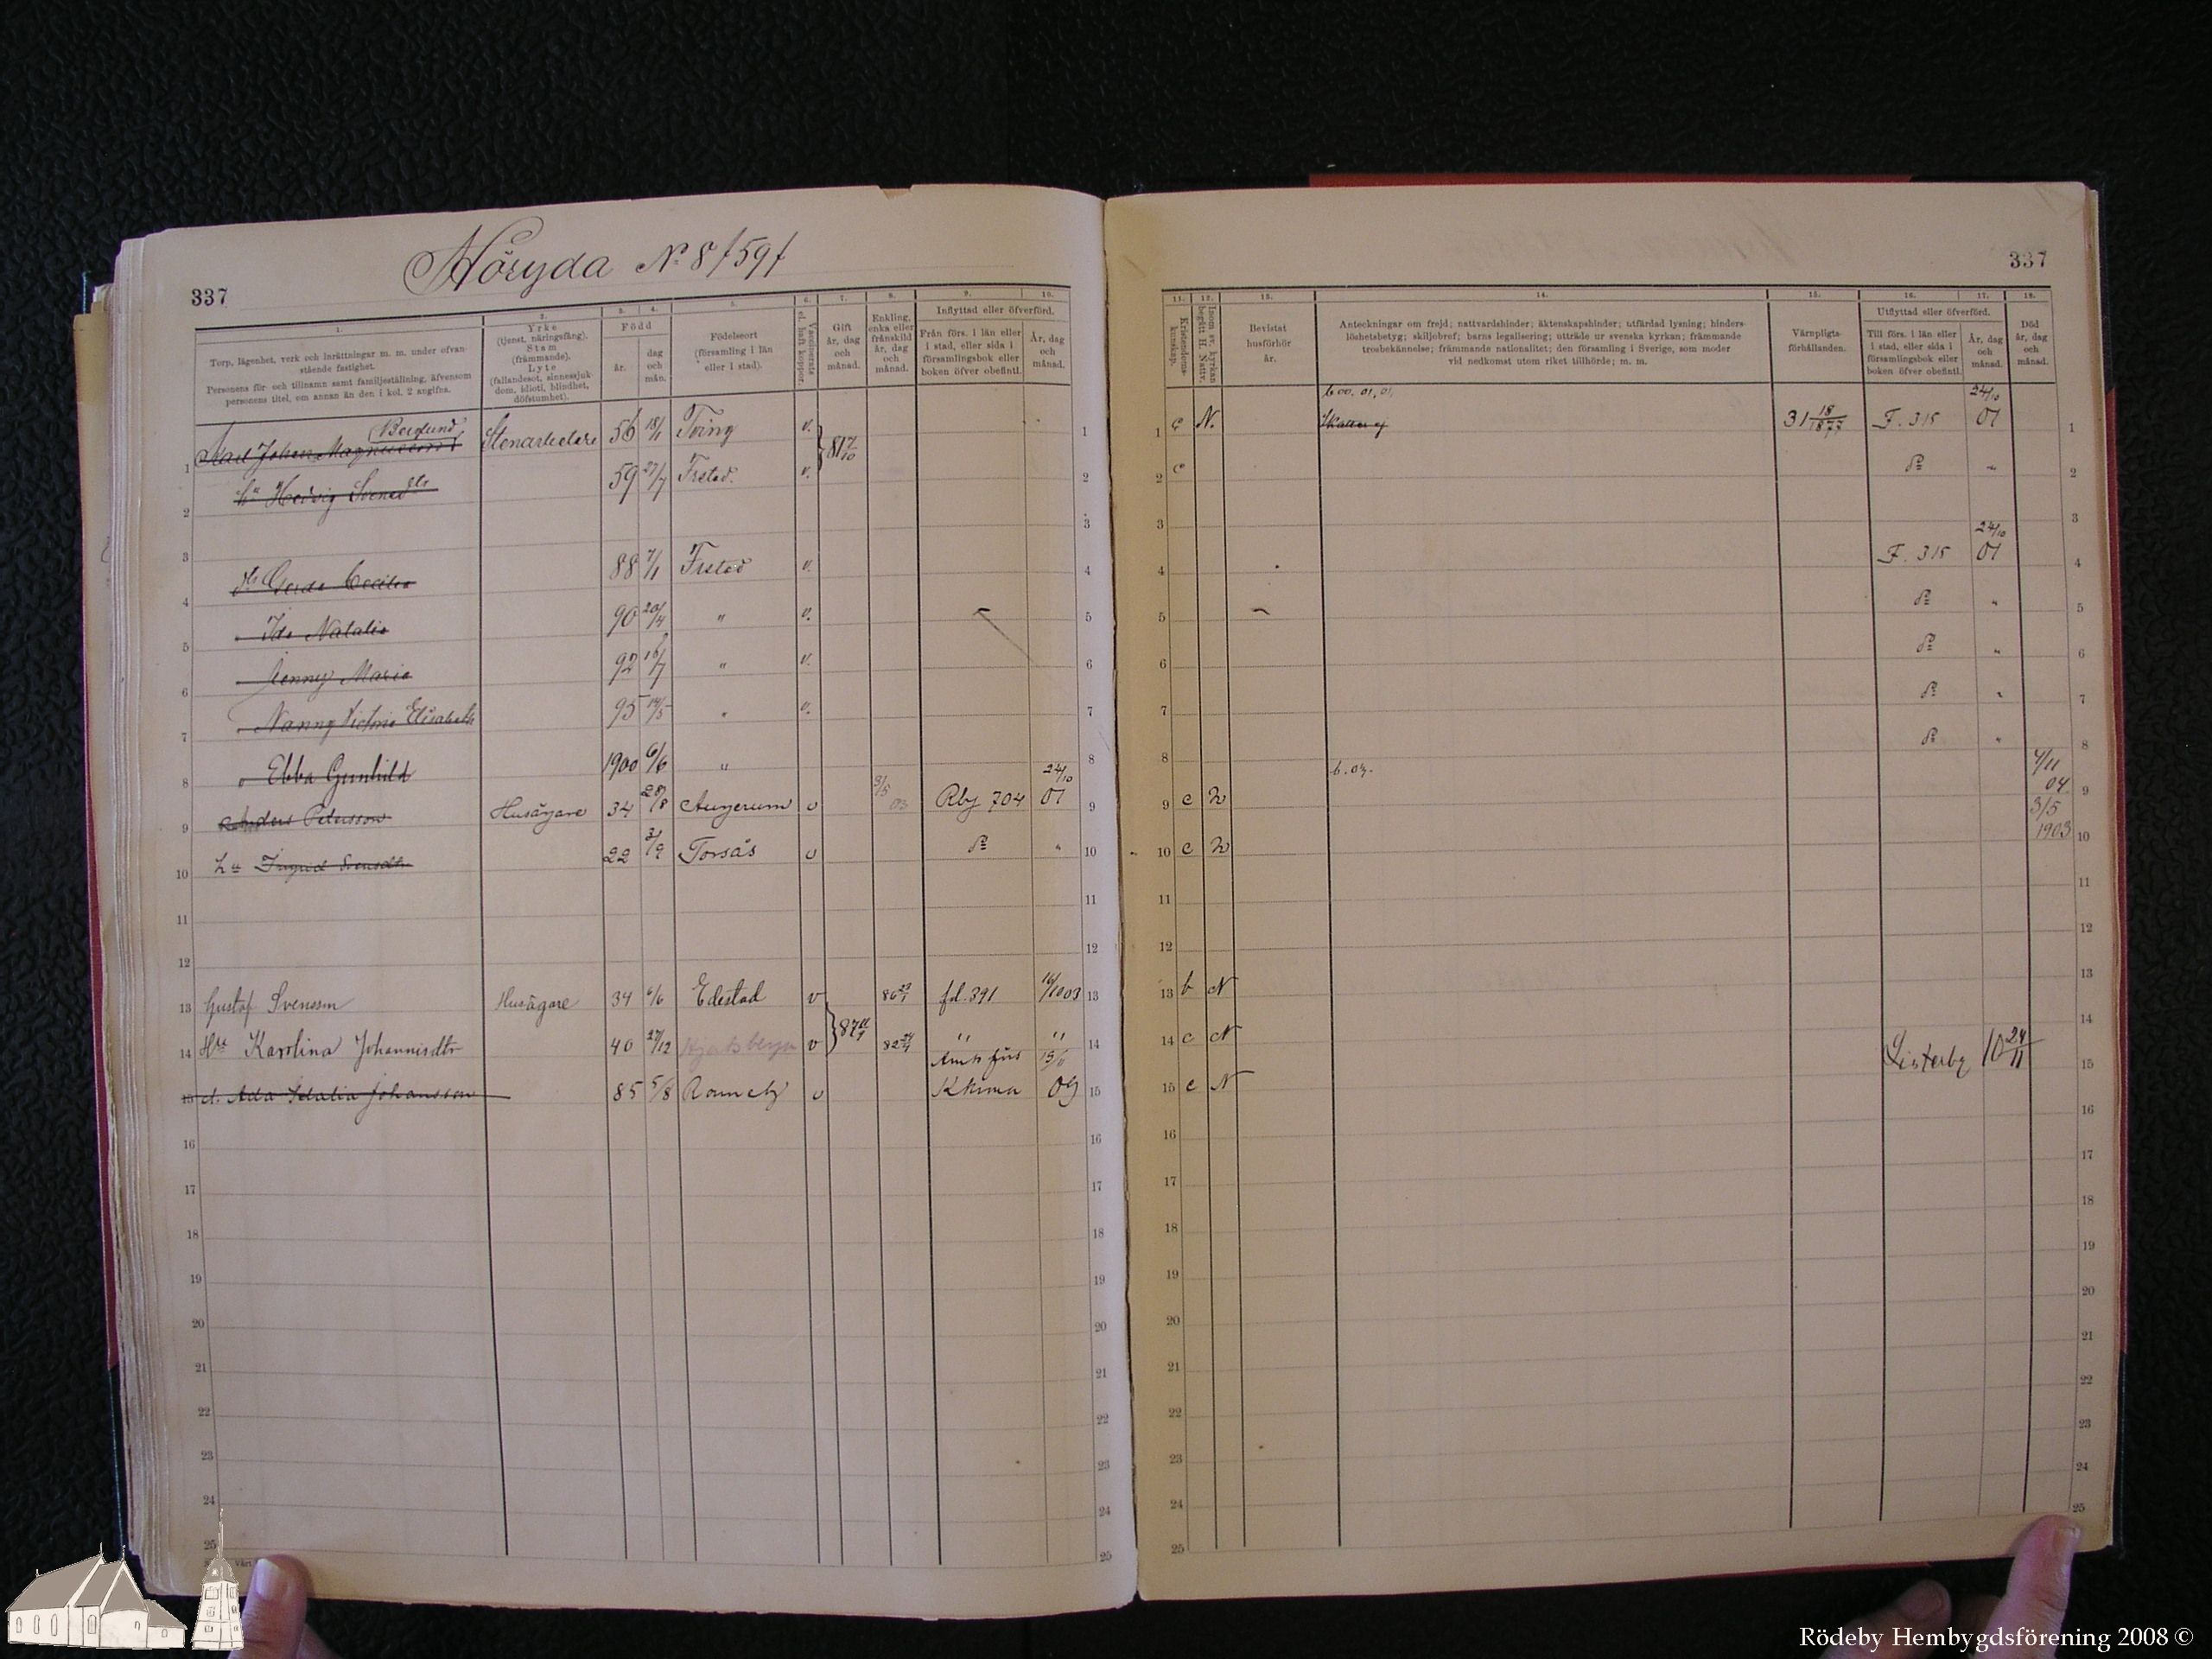 Höryda № 8/59/
337
1.
2.
3.
4.
5.
6.
7.
8.
9.
10.
Torp, lägenhet, verk och inrättningar m. m. under ofvan-
stående fastighet.
Personens för- och tillnamn samt familjeställning, äfvensom
personens titel, om annan än den i kol. 2 angifna.
Yrke
(tjenst, näringsfång).
Stam
(främmande).
Lyte
(fallandesot, sinnessjuk-
dom, idioti, blindhet,
döfstumhet).
Född
år.
dag
och
mån.
Födelseort
(församling i län
eller i stad).
Vaccinerats
el. haft koppor.
Gift
år, dag
och
månad.
Enkling,
enka eller
frånskild
år, dag
och
månad.
Inflyttad eller öfverförd.
Från förs. i län eller
i stad, eller sida i
församlingsbok eller
boken öfver obefintl.
År, dag
och
månad.
Berglund
1 Karl Johan Magnusson Stenarbetare 56 18/1 Tving v. 81 7/10 1
2 h:u Hedvig Svensdtr 59 27/7 Frstad. v. 2
3 3
4 dr Gerda Cecilia 88 7/1 Frstad v. 4
5 " Ida Natalia 90 20/4 " v. 5
6 " Jenny Maria 92 16/7 " v. 6
7 " Nanny Victoria Elisabeth 95 14/5 " v. 7
8 " Ebba Gunhild 1900 6/6 " 8
9 Anders Petersson Husägare 34 28/8 Augerum v 3/5 03 Rby 704 24/10 01 9
10 h:u Ingrid Svensdtr 22 3/9 Torsås v d:o " 10
11 11
12 12
13 Gustaf Svensson Husägare 34 6/6 Edestad v 86 23/1 fd. 391 16/10 03 13
14 Hu Karolina Johannisdtr 40 27/12 v 87 82 " " 14
15 d. Ada Idalia Johansson 85 5/8 Ronneby v 09 15
16 16
17 17
18 18
19 19
20 20
21 21
22 22
23 23
24 24
25 25
337
11.
12.
13.
14.
15.
16.
17.
18.
Kristendoms-
kunskap.
Inom sv. kyrkan
begått H. Nattv.
Bevistat
husförhör
år.
Anteckningar om frejd; nattvardshinder; äktenskapshinder; utfärdad lysning; hinders-
löshetsbetyg; skiljobref; barns legalisering; utträde ur svenska kyrkan; främmande
trosbekännelse; främmande nationalitet; den församling i Sverige, som moder
vid nedkomst utom riket tillhörde; m. m.
Värnpligts-
förhållanden.
Utflyttad eller öfverförd.
Till förs. i län eller
i stad, eller sida i
församlingsbok eller
boken öfver obefintl.
År, dag
och
månad.
Död
år, dag
och
månad.
1 c N. 31 18/1877 F. 315 24/10 01 1
2 c d:o " 2
3 3
4 F. 315 24/10 01 4
5 d:o " 5
6 d:o " 6
7 d:o " 7
8 d:o " 8
9 c N b. 03. 4/11 04 9
10 c N 3/5 1903 10
11 11
12 12
13 b N 13
14 c N 14
15 c N Listerby 10 24/11 15
16 16
17 17
18 18
19 19
20 20
21 21
22 22
23 23
24 24
25 25
Rödeby Hembygdsförening 2008 ©